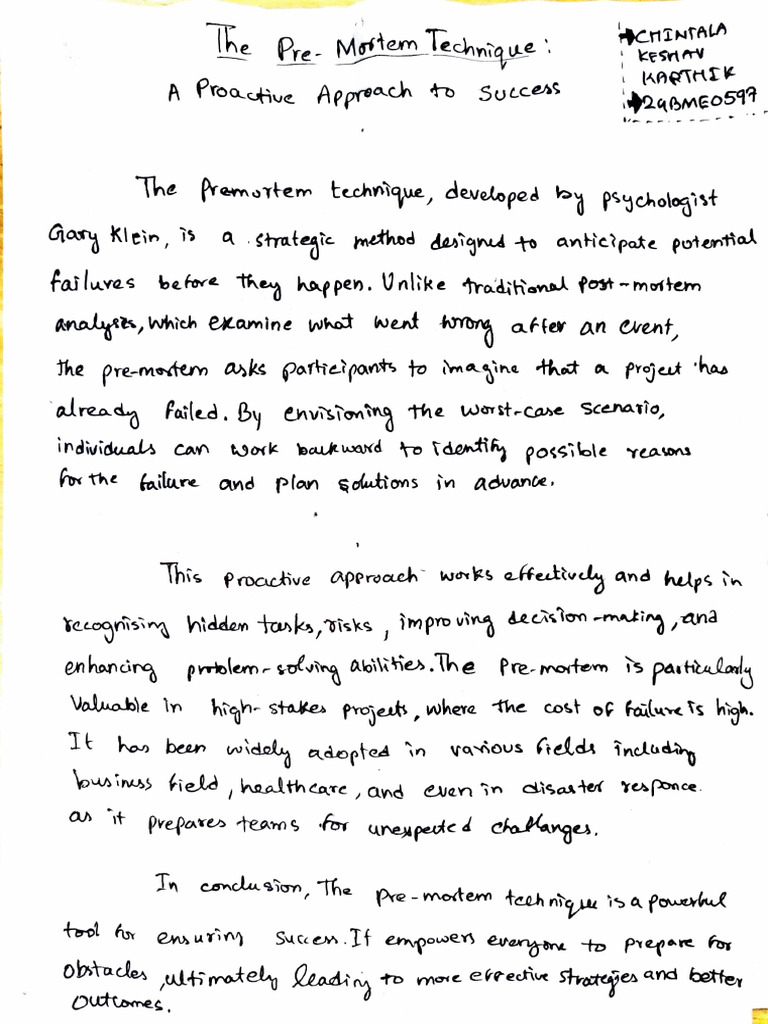 The Pre-Mortem Technique:
A Proactive Approach to Success
CHINTALA
KESHAV
KARTHIK
24BME0597
The Premortem technique, developed by psychologist
Gary Klein, is a strategic method designed to anticipate potential
failures before they happen. Unlike traditional post-mortem
analyses, which examine what went wrong after an event,
the pre-mortem asks participants to imagine that a project has
already failed. By envisioning the worst-case scenario,
individuals can work backward to identify possible reasons
for the failure and plan solutions in advance.
This proactive approach works effectively and helps in
recognising hidden tasks, risks, improving decision-making, and
enhancing problem-solving abilities. The Pre-mortem is particularly
valuable in high-stakes projects, where the cost of failure is high.
It has been widely adopted in various fields including
business field, healthcare, and even in disaster responce.
as it prepares teams for unexpected challenges.
In conclusion, The Pre-mortem technique is a powerful
tool for ensuring success. It empowers everyone to prepare for
obstacles, ultimately leading to more effective strategies and better
outcomes.